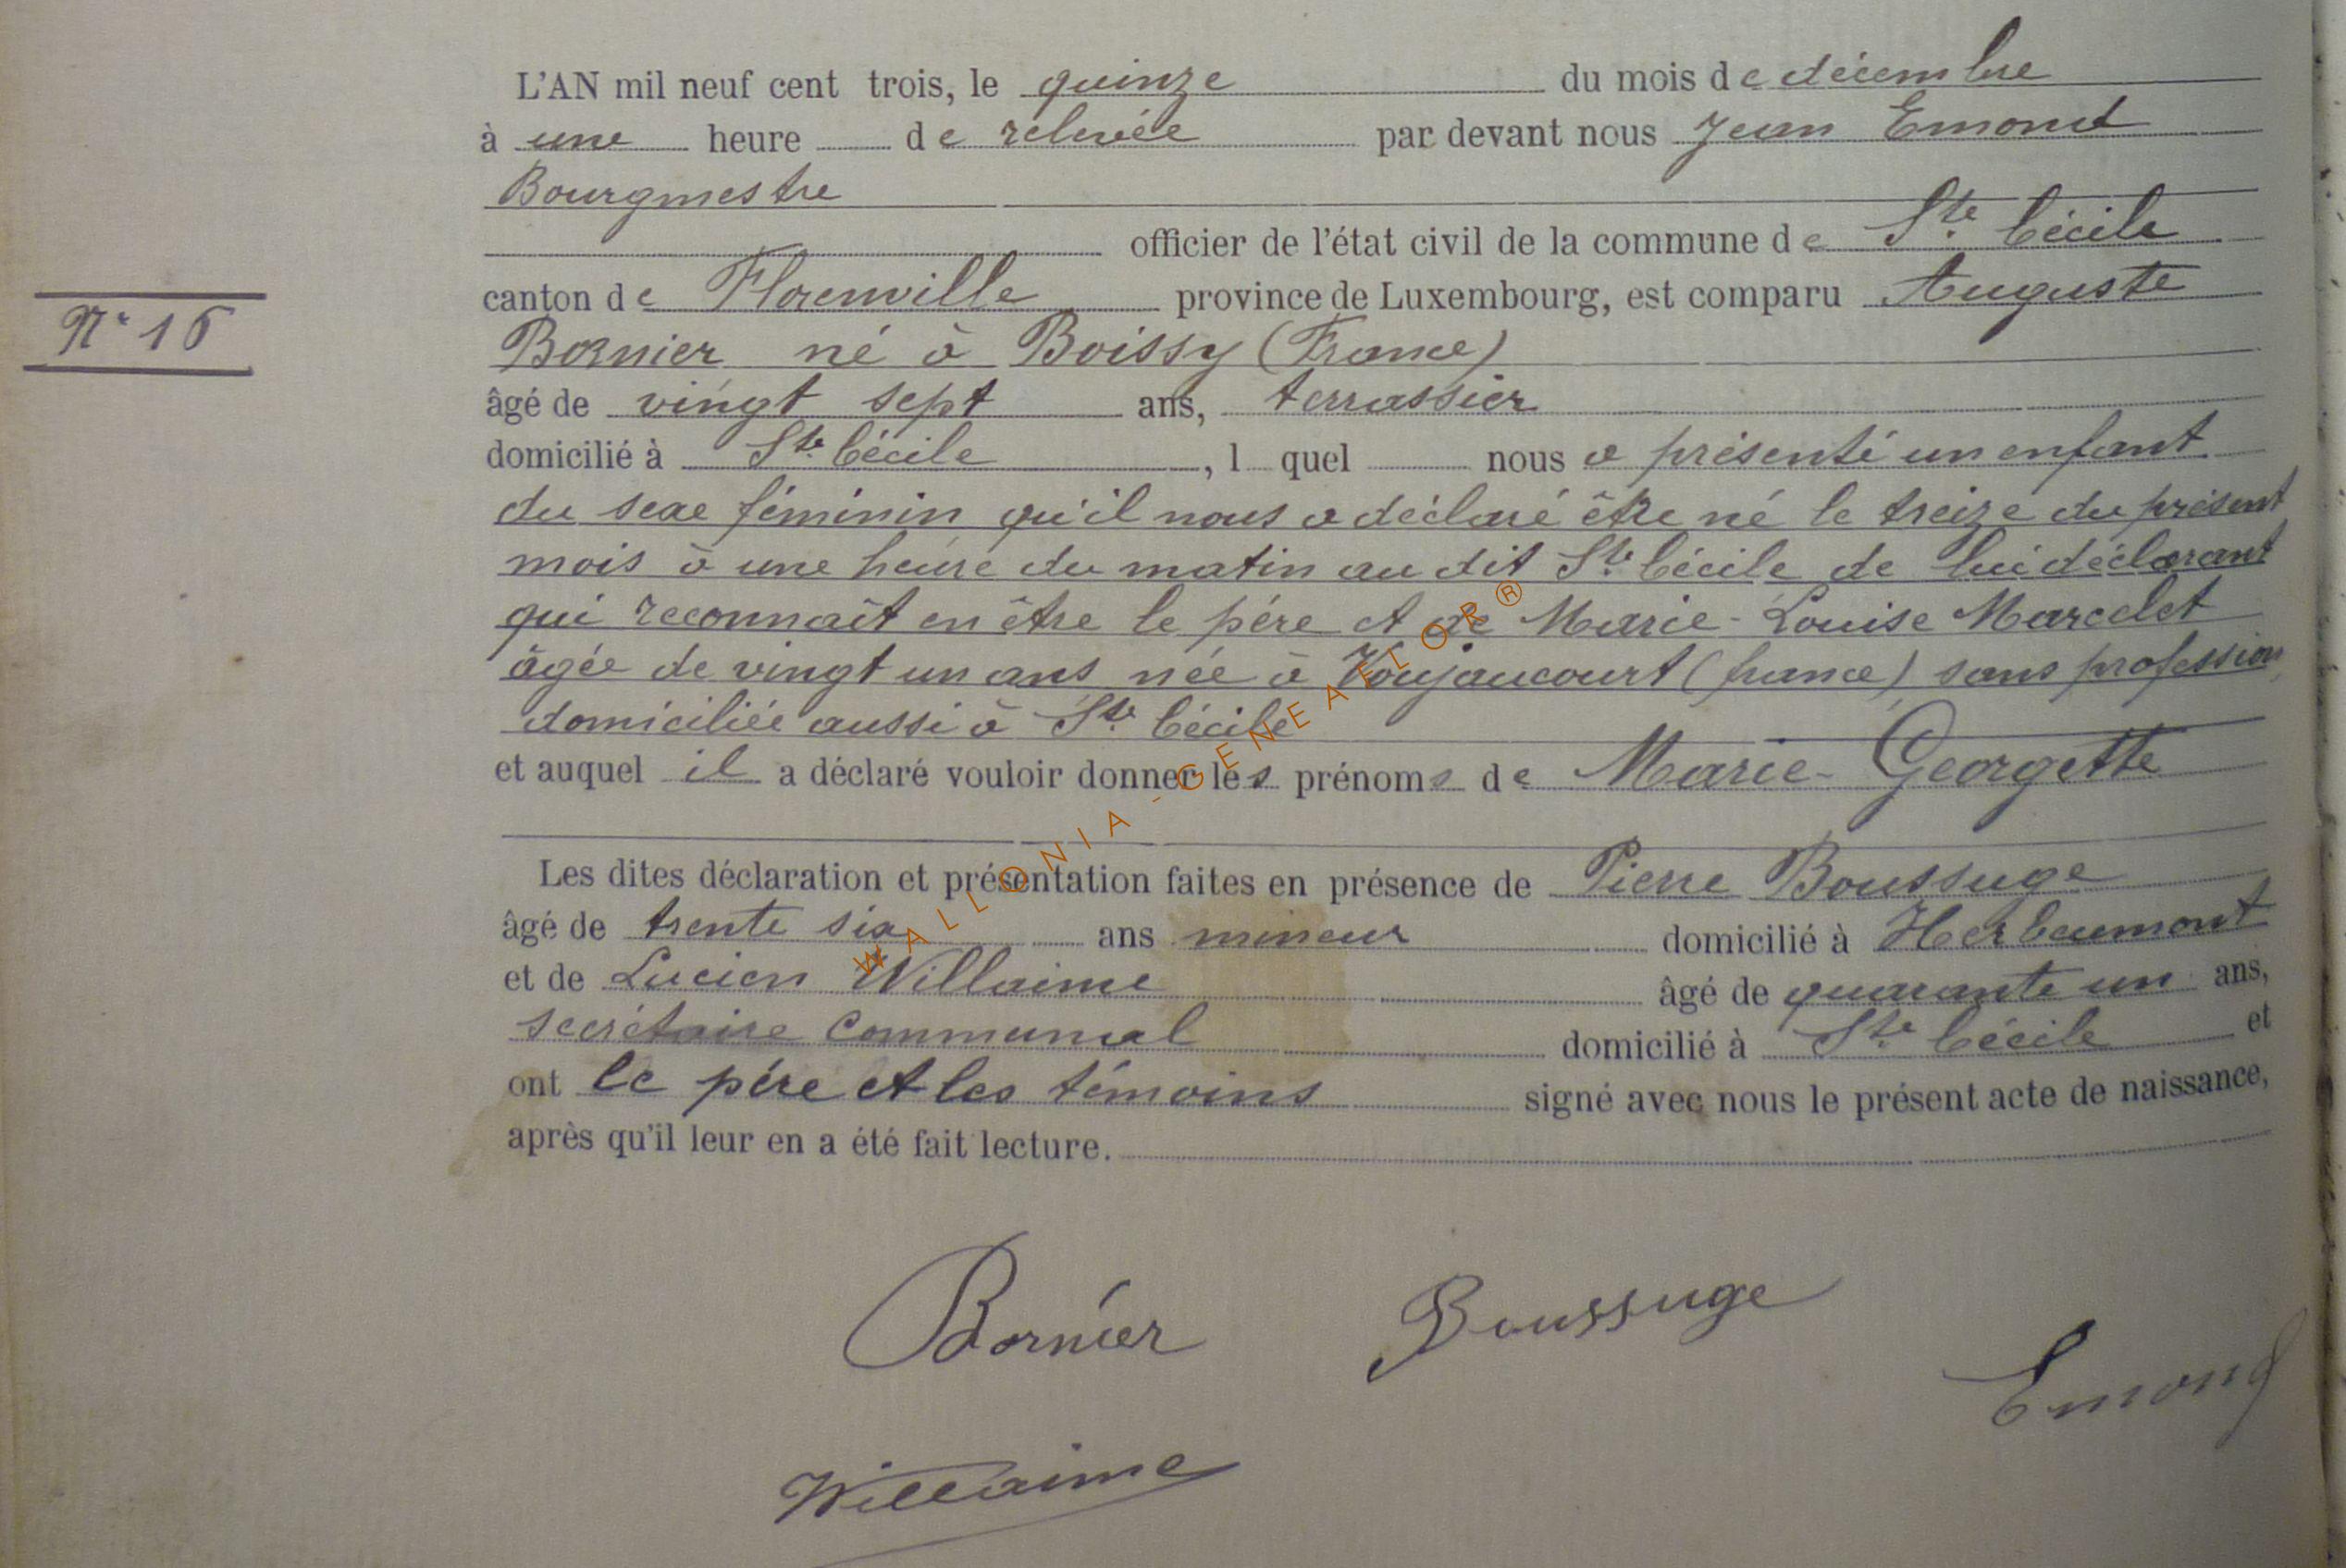 L'AN mil neuf cent trois, le quinze du mois de décembre
à une heure de relevée par devant nous Jean Emond
Bourgmestre
officier de l'état civil de la commune de Ste Cécile
canton de Florenville province de Luxembourg, est comparu Auguste
N° 16
Bornier né à Boissy (France)
âgé de vingt sept ans, terrassier
domicilié à Ste Cécile, l quel nous a présenté un enfant
du sexe féminin qu'il nous a déclaré être né le treize du présent
mois à une heure du matin au dit Ste Cécile de lui déclarant
qui reconnaît en être le père et de Marie-Louise Marcelet
âgée de vingt un ans née à Voujaucourt (france) sans profession,
domiciliée aussi à Ste Cécile
et auquel il a déclaré vouloir donner les prénoms de Marie-Georgette
Les dites déclaration et présentation faites en présence de Pierre Boussuge
âgé de trente six ans mineur domicilié à Herbeumont
et de Lucien Willaime âgé de quarante un ans,
secrétaire communal domicilié à Ste Cécile et
ont le père et les témoins signé avec nous le présent acte de naissance,
après qu'il leur en a été fait lecture.
WALLONIA-GENEALOR®
Bornier Boussuge
Emond
Willaime